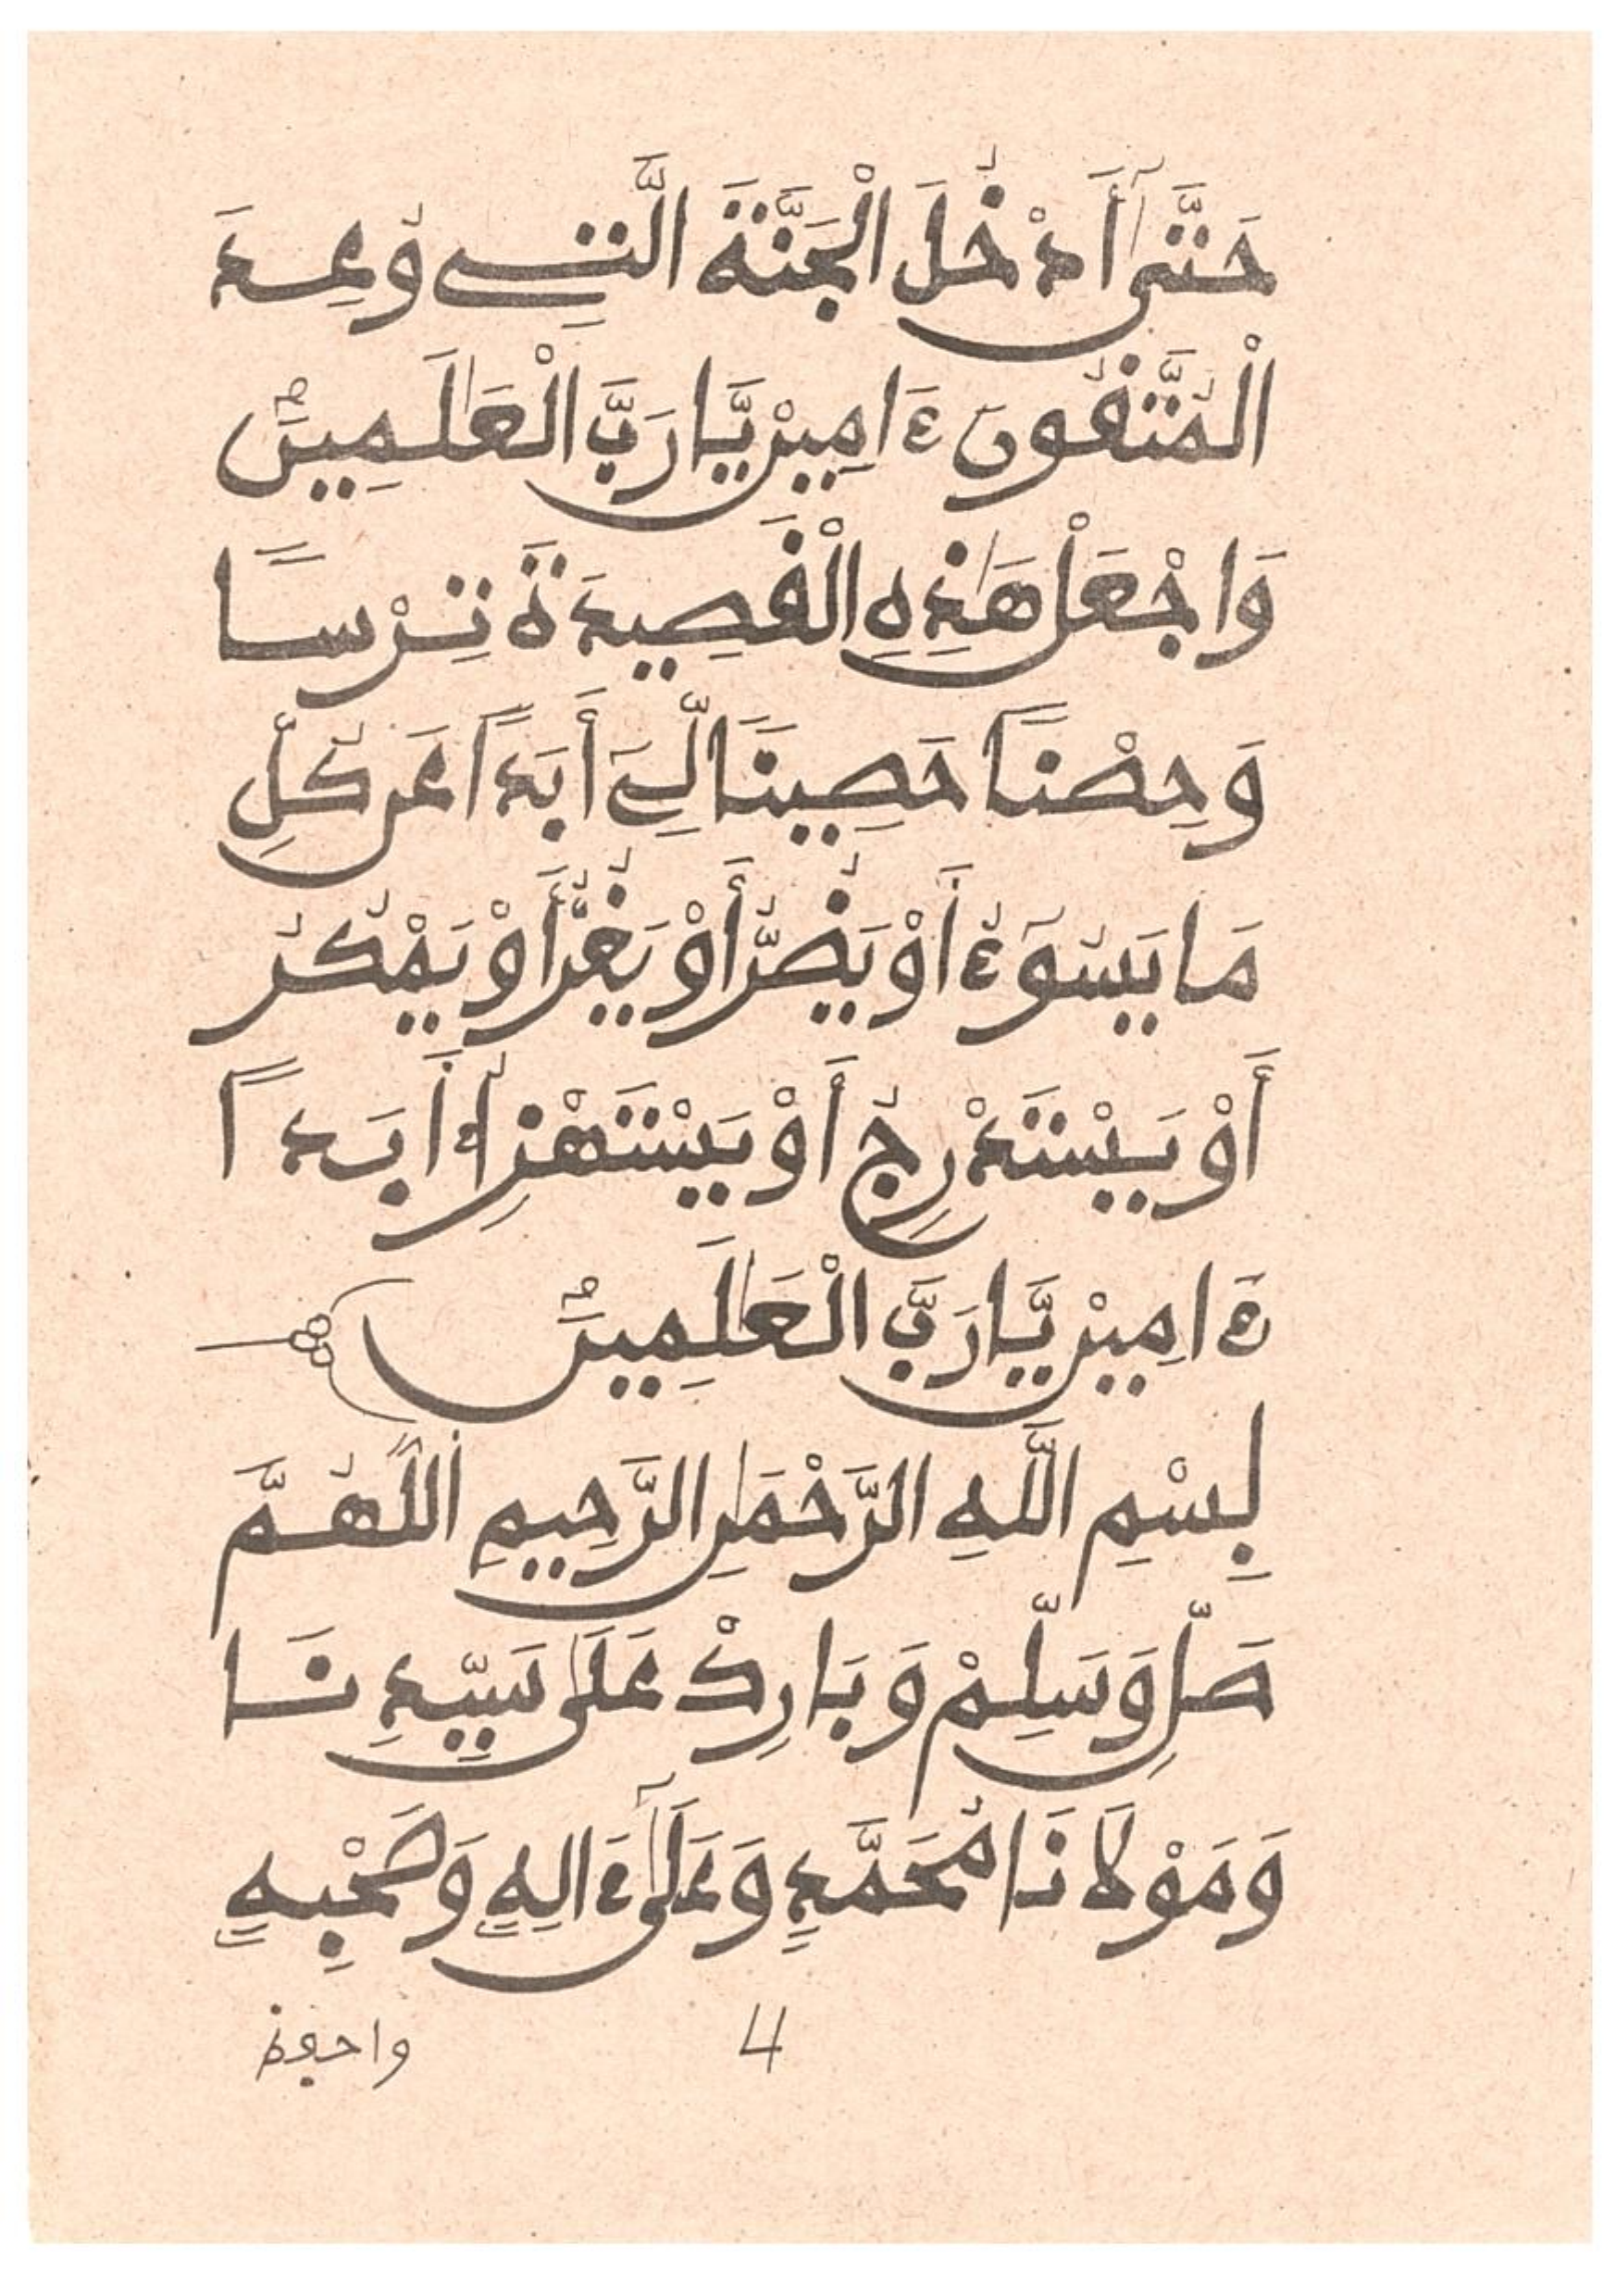 حَتَّىٰٓ أَدْخُلَ الْجَنَّةَ الَّتِے وُعِدَ
الْمُتَّقُونَ ءَامِينْ يَّا رَبَّ الْعَٰلَمِينَ
وَاجْعَلْ هَٰذِهِ الْقَصِيدَةَ تِرْسًا
وَحِصْنًا حَصِينًا لِّےَ أَبَدًا عَن كُلِّ
مَا يَسُوٓءُ أَوْ يَضُرُّ أَوْ يَغُرُّ أَوْ يَمْكُرُ
أَوْ يَسْتَدْرِجُ أَوْ يَسْتَهْزِئُ أَبَدًا
ءَامِينْ يَّا رَبَّ الْعَٰلَمِينَ
بِسْمِ اللَّهِ الرَّحْمَٰنِ الرَّحِيمِ اللَّهُمَّ
صَلِّ وَسَلِّمْ وَبَارِكْ عَلَىٰ سَيِّدِنَا
وَمَوْلَانَا مُحَمَّدٍ وَعَلَىٰٓ ءَالِهِ وَصَحْبِهِ
4
واجعوذ